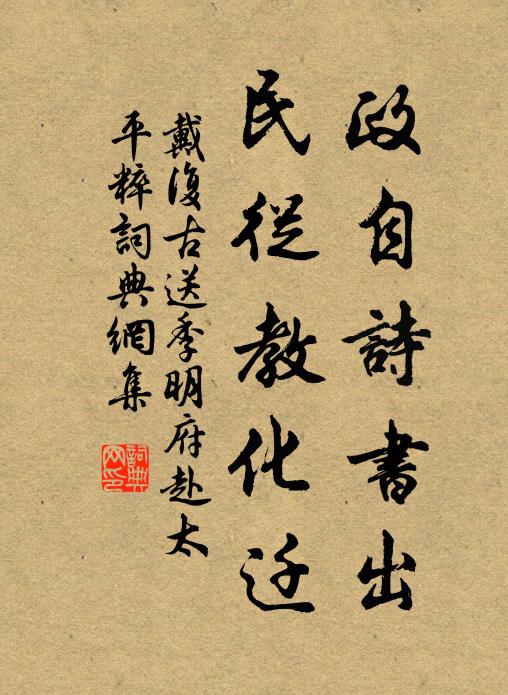 政自詩書出
民從教化迁
戴復古送季明府赴太
平粹詞典網集
詞典
网印